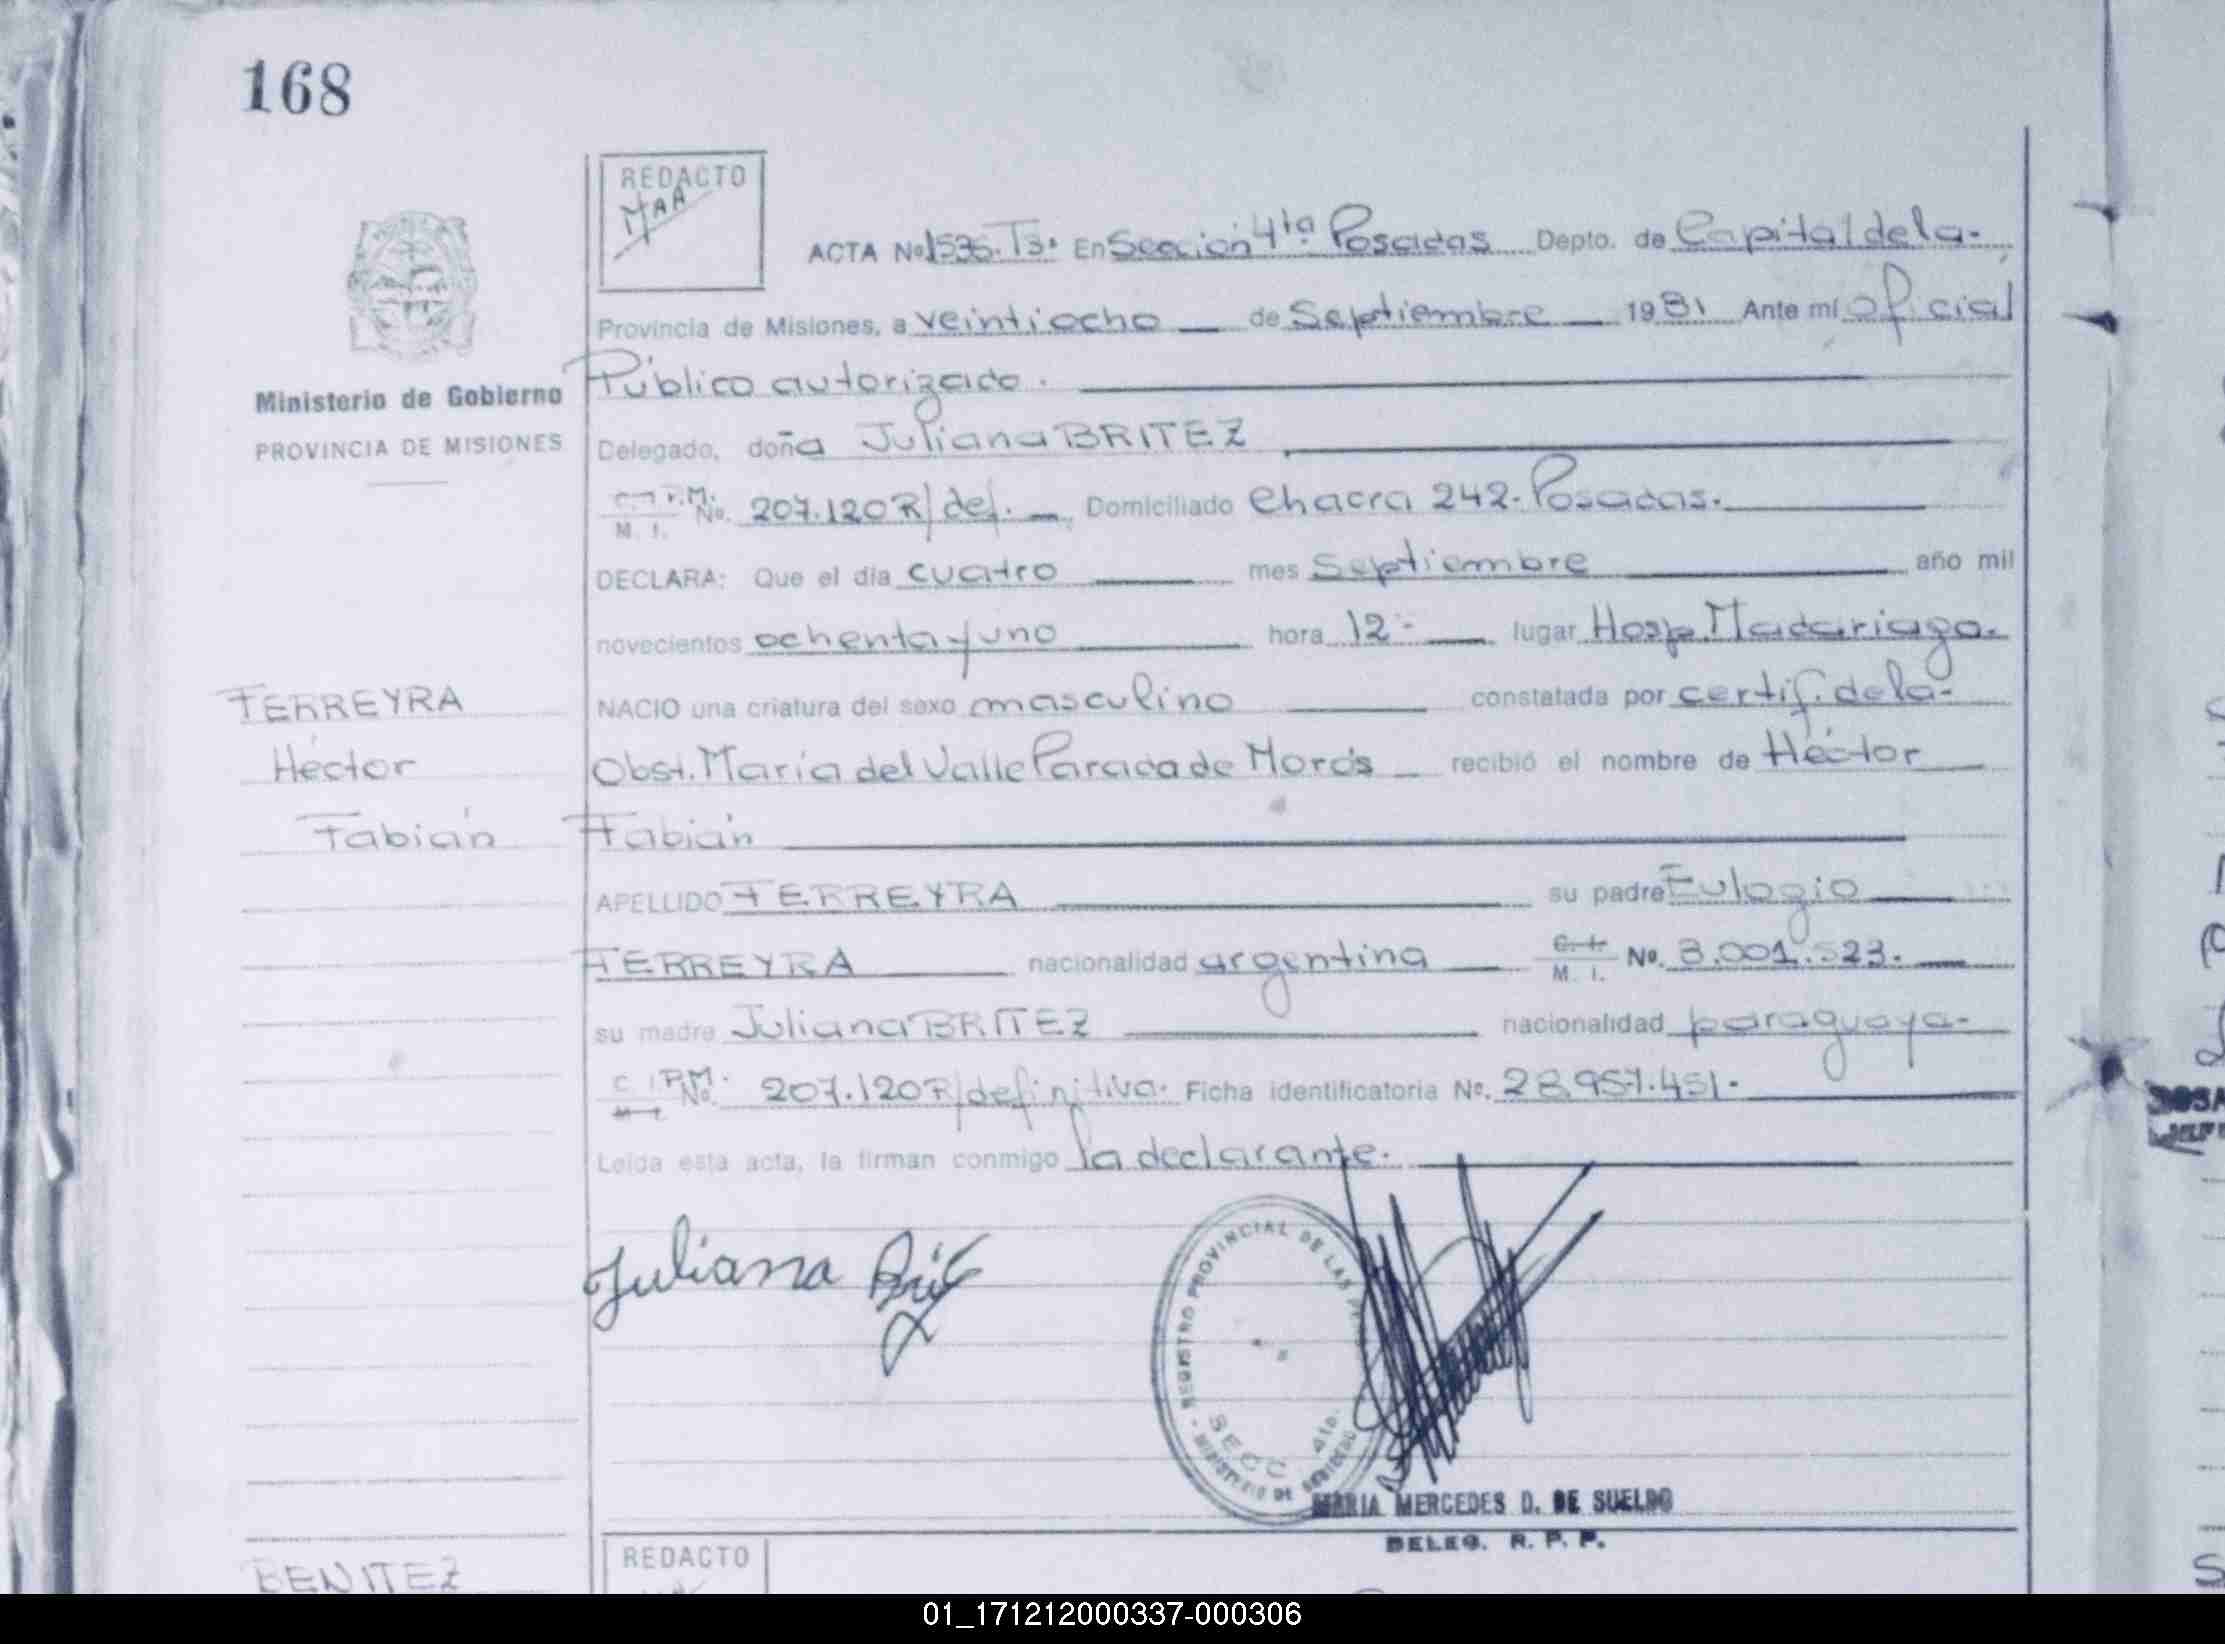 168
REDACTO
MAA
ACTA Nº 1536. T3. En Sección 4ta Posadas Depto. de Capital de la.
Provincia de Misiones, a veintiocho de Septiembre 1981 Ante mí oficial
Público autorizado.
Ministerio de Gobierno
PROVINCIA DE MISIONES
Delegado, doña Juliana BRITEZ
C.I.P.M. No. 207.120 R/def. Domiciliado Chacra 242. Posadas.
M. I.
DECLARA: Que el día cuatro mes Septiembre año mil
novecientos ochenta y uno hora 12 lugar Hosp. Madariaga.
FERREYRA
NACIO una criatura del sexo masculino constatada por certif. de la
Héctor
Obst. María del Valle Parada de Morós recibió el nombre de Héctor
Fabián
Fabián
APELLIDO FERREYRA su padre Eulogio
FERREYRA nacionalidad argentina C. I. M. I. No. 8.001.523.
su madre Juliana BRITEZ nacionalidad paraguaya-
C.I.P.M. No. 207.120 R/definitiva. Ficha identificatoria No. 28.957.451.
Leída esta acta, la firman conmigo la declarante.
Juliana Brit
REGISTRO PROVINCIAL DE LAS
SECC 4ta.
MINISTERIO DE GOBIERNO
MARIA MERCEDES D. DE SUELDO
DELEG. R. P. P.
REDACTO
BENITEZ
01_171212000337-000306